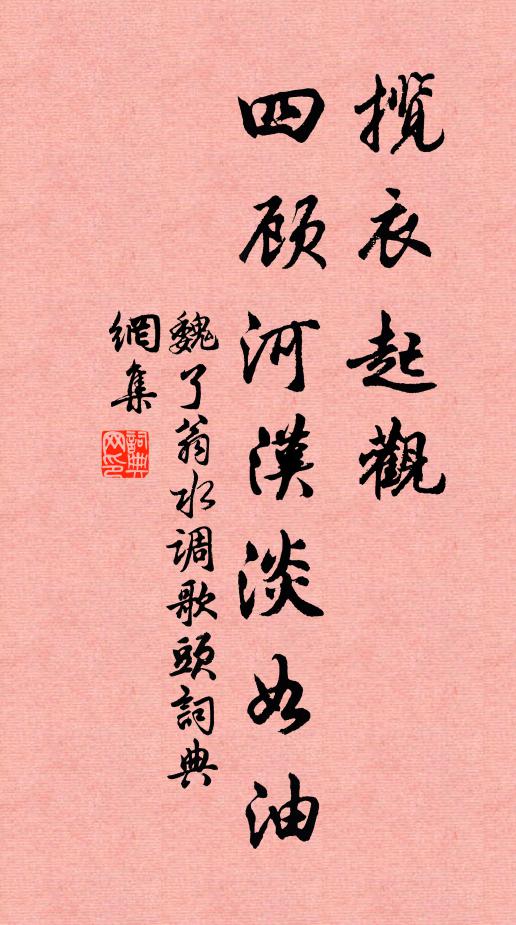 攬衣起觀
四顾河漢淡如油
魏了翁水调歌頭詞典
網集
詞典网印